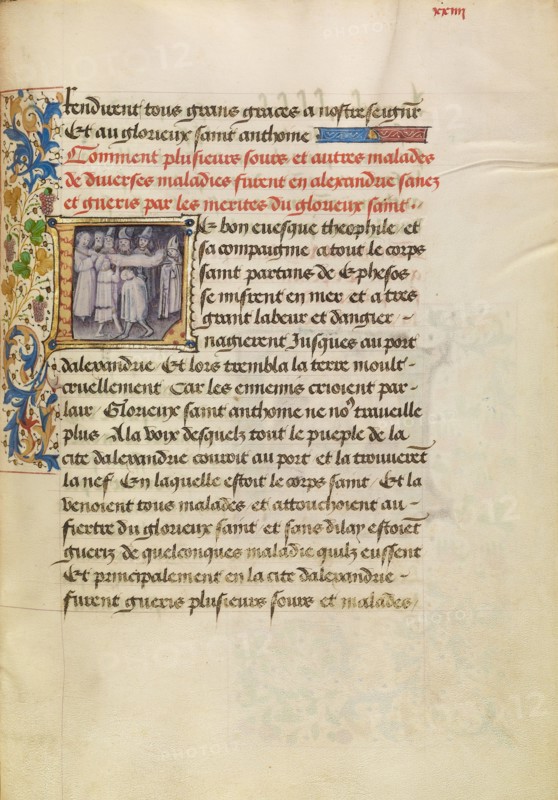 xxiiii
Rendirent tous grans graces a nostre seignr
Et au glorieux saint anthoine
Comment plusieurs sours et autres malades
de diverses maladies furent en alexandrie sanez
et gueris par les merites du glorieux saint.
Le bon evesque theophile et
sa compaignie a tout le corps
saint partans de Ephesos
se misrent en mer et a tres
grant labeur et dangier
nagierent Jusques au port
dalexandrie Et lors trembla la terre moult
cruellement Car les ennemis crioient par
lair Glorieux saint anthoine ne no9 traveille
plus A la voix desquelz tout le pueple de la
cite dalexandrie couroit au port et la trouveret
la nef En laquelle estoit le corps saint Et la
venoient tous malades et attouchoient au
fiertre du glorieux saint et sans dilay estoiet
gueriz de quelconques maladie quilz eussent
Et principalement en la cite dalexandrie
furent gueris plusieurs sours et malades